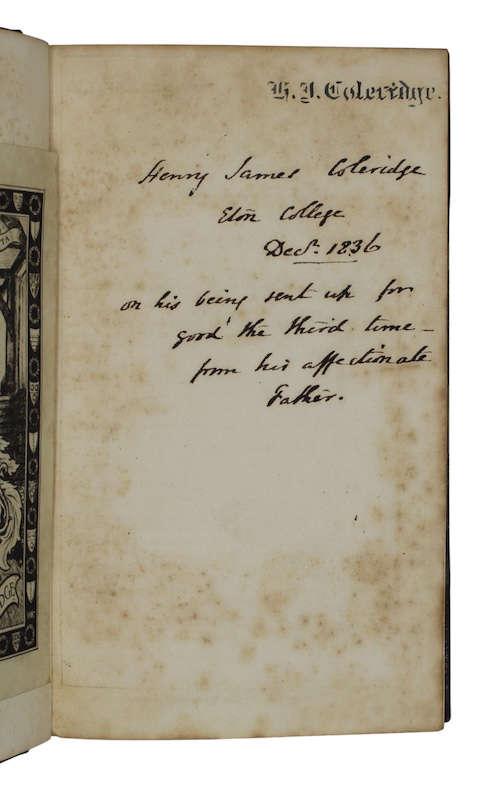 H. J. Coleridge.
Henry James Coleridge
Eton College
Decr. 1836
on his being sent up for
good the third time –
from his affectionate
Father.